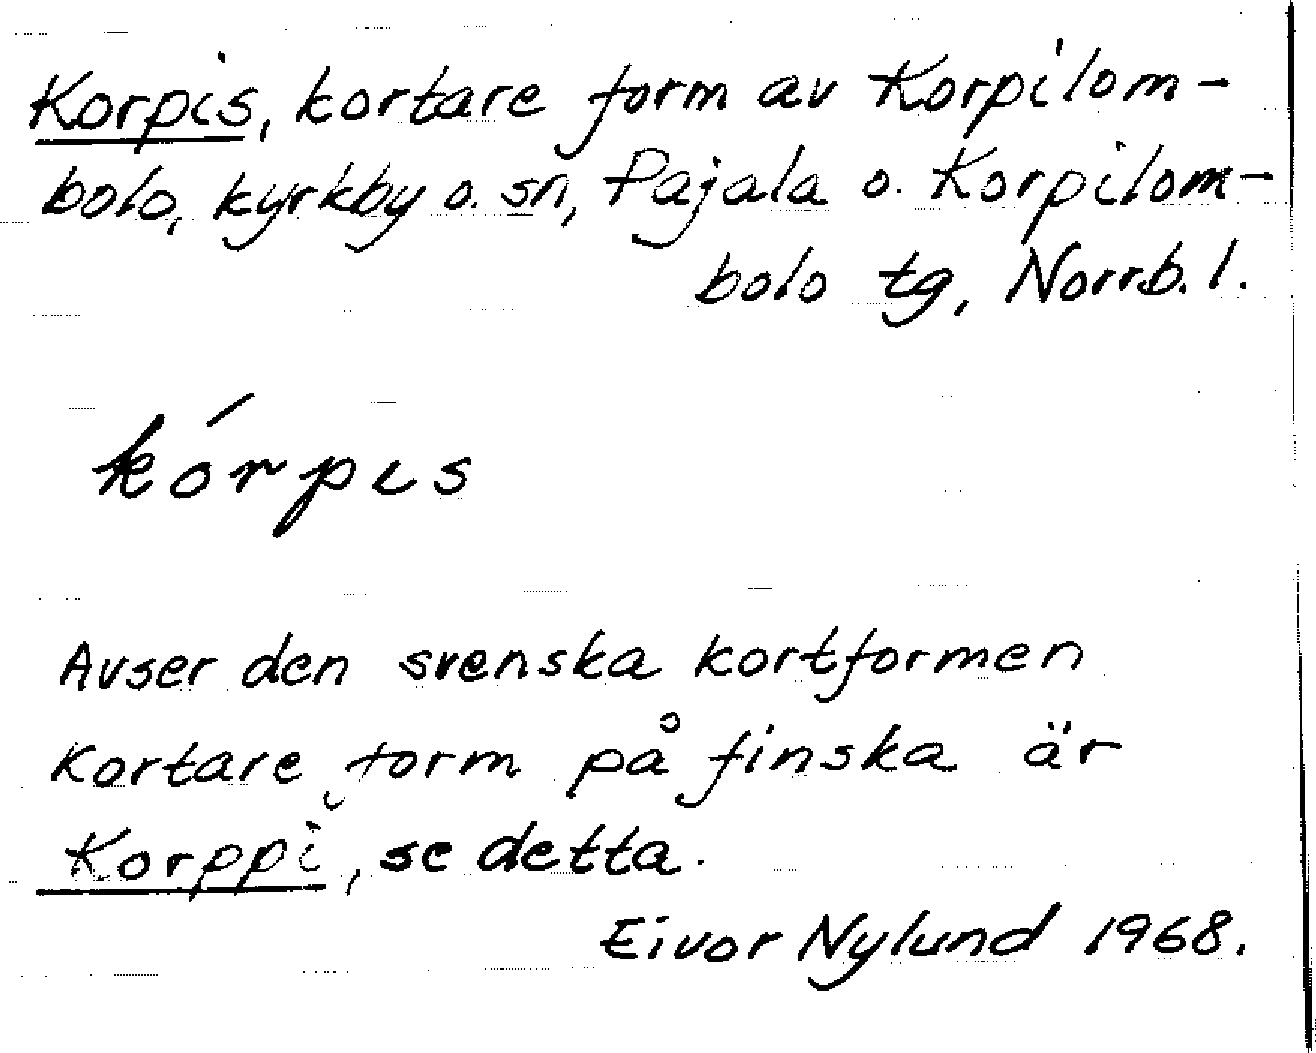 Korpis, kortare form av Korpilom-
bolo, kyrkby o. sn, Pajala o. Korpilom-
bolo tg, Norrb. l.
kórpis
Avser den svenska kortformen
Kortare form på finska är
Korppi, se detta.
Eivor Nylund 1968.